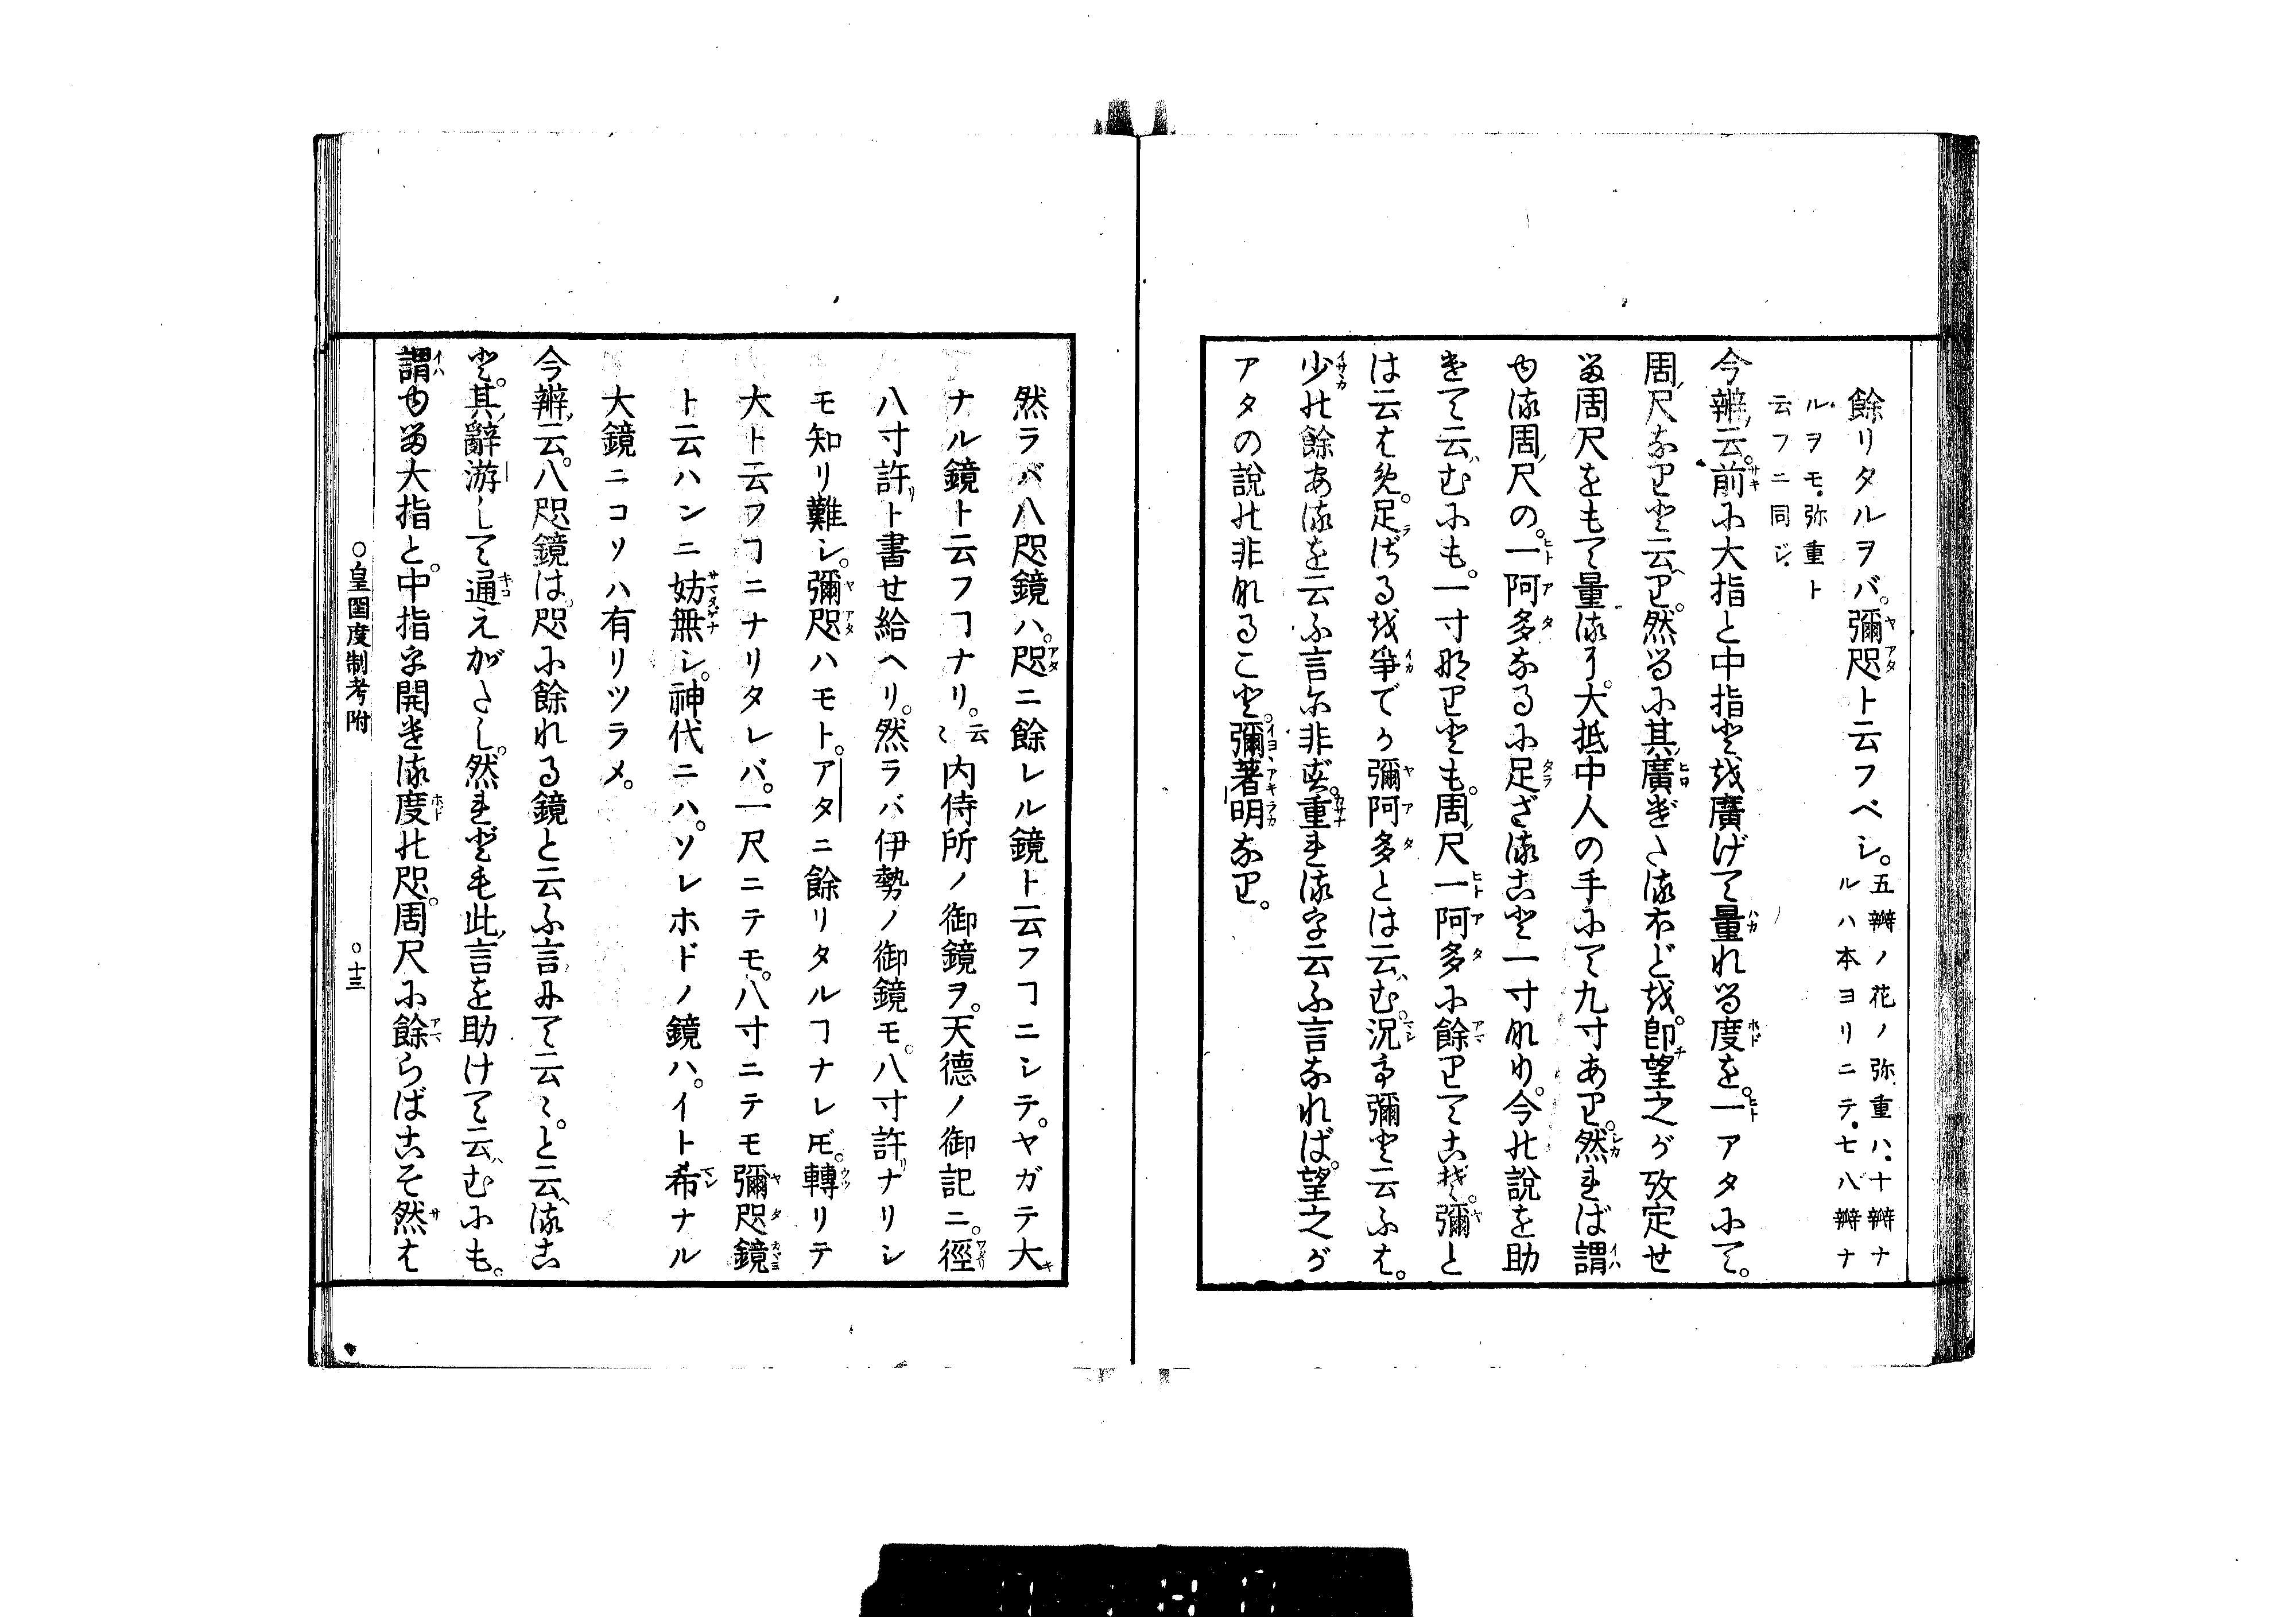 餘リタルヲバ。彌咫ト云フベシ。五瓣ノ花ノ弥重ハ、十瓣ナルハ本ヨリニテ、七八瓣ナ
ルヲモ、弥重ト云フニ同ジ、
今辨云。前に大指と中指とを廣げて量れる度を。一アタにて。
周尺なりと云へり。然るに其廣ぎたるほどを。卽望之が攷定せ
る周尺をもて量るに。大抵中人の手にて九寸あり。然れば謂
ゆる周尺の。一阿多なるに足ざること一寸なり。今の說を助
けて云むにも。一寸なりとも。周尺一阿多に餘りてこそ。彌と
は云はめ。足ざるを爭でか彌阿多とは云む。況や彌と云ふは。
少の餘あるを云ふ言に非ず。重れるを云ふ言なれば。望之が
アタの說の非なること。彌著明なり。
然ラバ八咫鏡ハ。咫ニ餘レル鏡ト云フヿニシテ。ヤガテ大
ナル鏡ト云フヿナリ。云〻内侍所ノ御鏡ヲ。天德ノ御記ニ。徑
八寸許ト書セ給ヘリ。然ラバ伊勢ノ御鏡モ。八寸許ナリシ
モ知リ難シ。彌咫ハモト。アタニ餘リタルヿナレドモ。轉リテ
大ト云フヿニナリタレバ。一尺ニテモ。八寸ニテモ彌咫鏡
ト云ハンニ妨無シ。神代ニハ。ソレホドノ鏡ハ。イト希ナル
大鏡ニコソハ有リツラメ。
今辨云。八咫鏡は。咫に餘れる鏡と云ふ言にて云〻。と云へるこ
と。其辭游して通えがたし。然れども此言を助けて云むにも。
謂ゆる大指と。中指を開きたる度の咫。周尺に餘らばこそ然は
○皇國度制考附　○十三